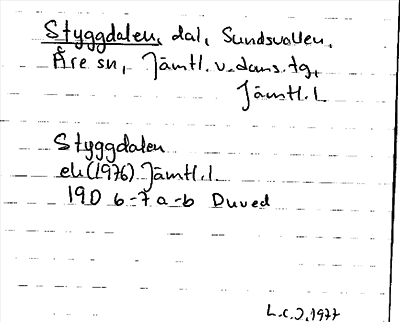 Styggdalen, dal, Sundsvallen,
Åre sn, Jämtl. v. doms. tg,
Jämtl. l
Styggdalen
ek (1976) Jämtl. l.
19D 6-7 a-b Duved
L.C.J, 1977